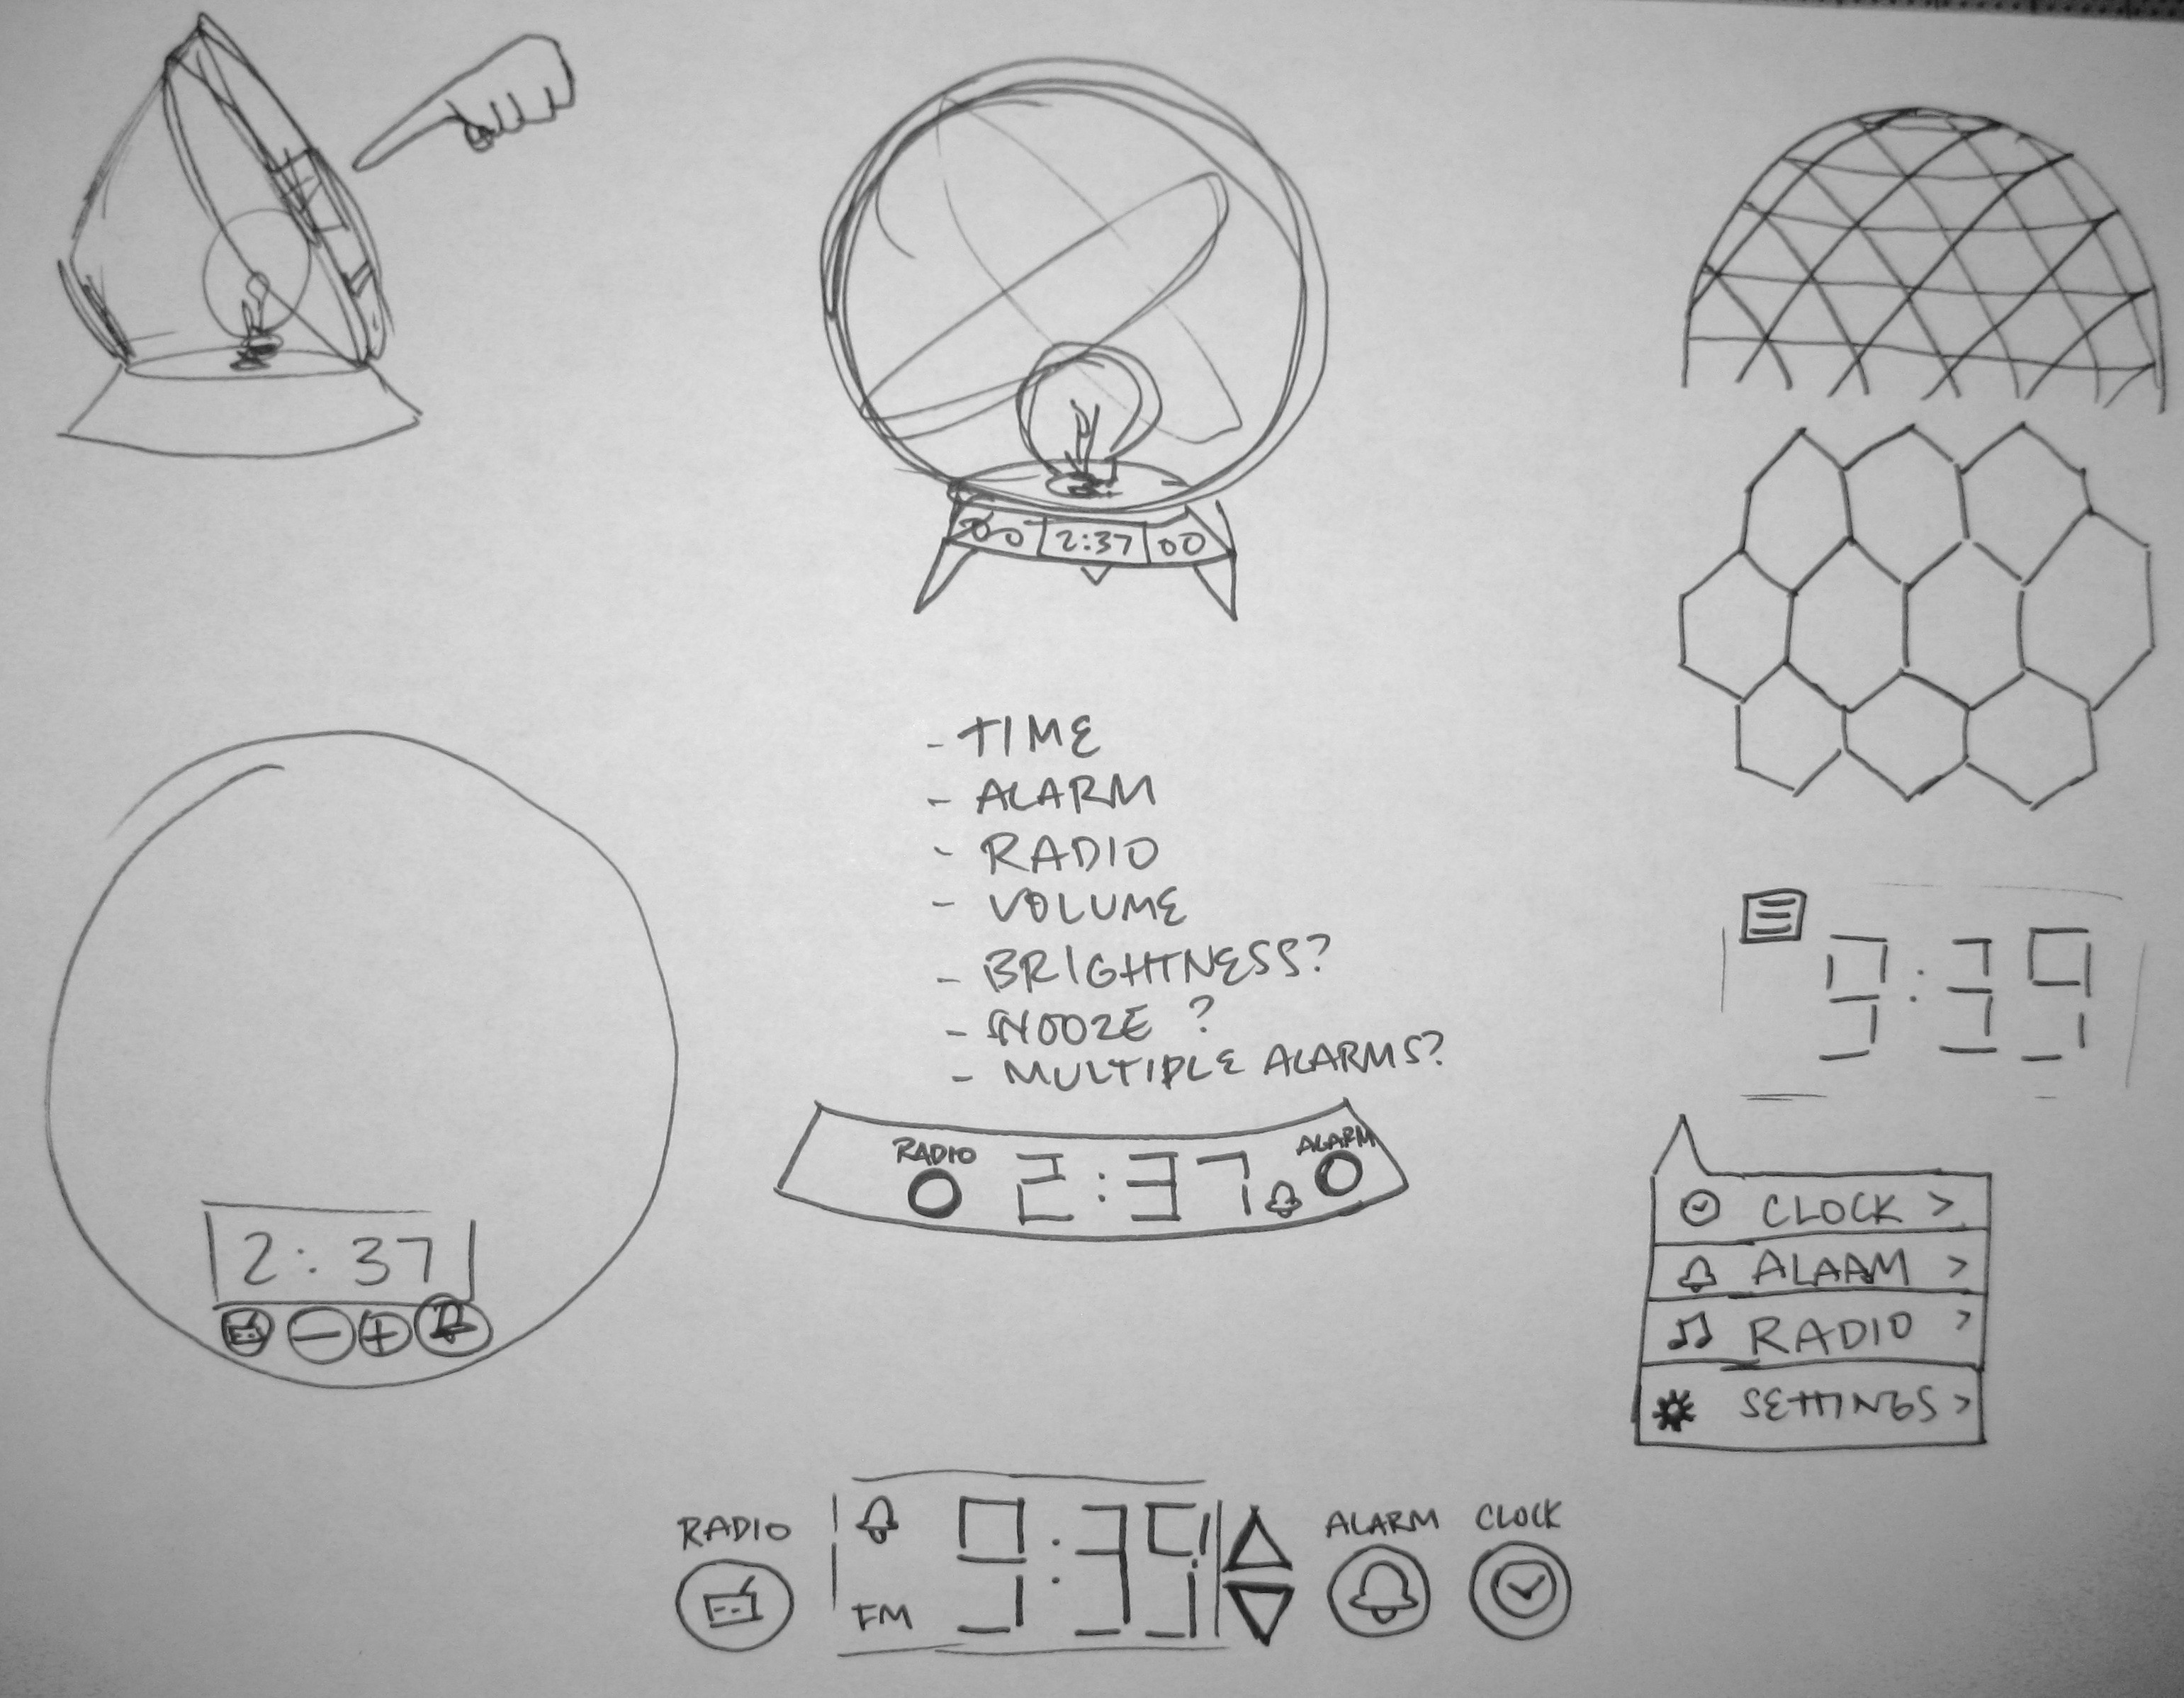 2:37
- TIME
- ALARM
- RADIO
- VOLUME
- BRIGHTNESS?
- SNOOZE ?
- MULTIPLE ALARMS?
9:39
RADIO 2:37 ALARM
2:37
CLOCK >
ALAAM >
RADIO >
SETTINGS >
RADIO FM 9:39 ALARM CLOCK